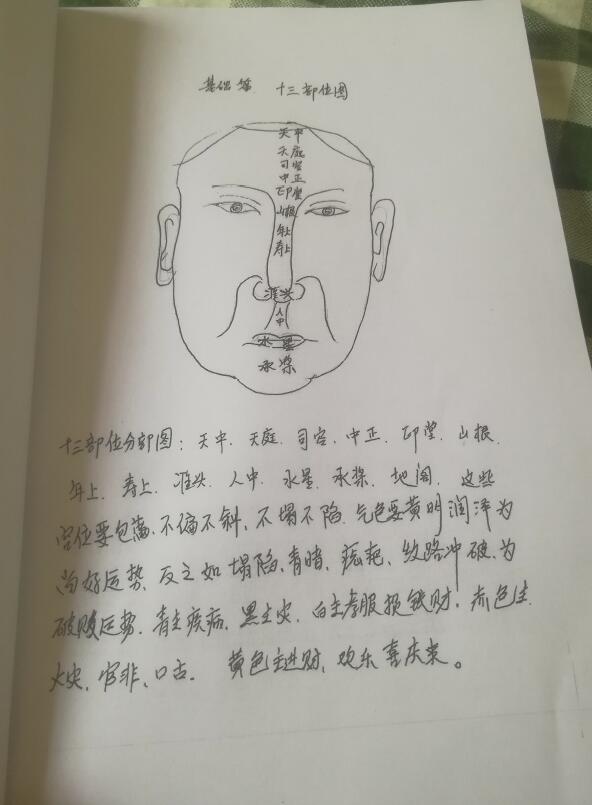 基础篇 十三部位图
天中
天庭
司空
中正
印堂
山根
年上
寿上
准头
人中
水星
承浆
十三部位分部图：天中、天庭、司空、中正、印堂、山根、
年上、寿上、准头、人中、水星、承浆、地阁、这些
宫位要包满、不偏不斜、不塌不陷、气色要黄明润泽为
尚好运势、反之如塌陷、青暗、疤耗、纹路冲破、为
破败运势、青主疾病、黑主灾、白主孝服损钱财、赤色主
火灾、官非、口舌. 黄色主进财、欢乐喜庆来。